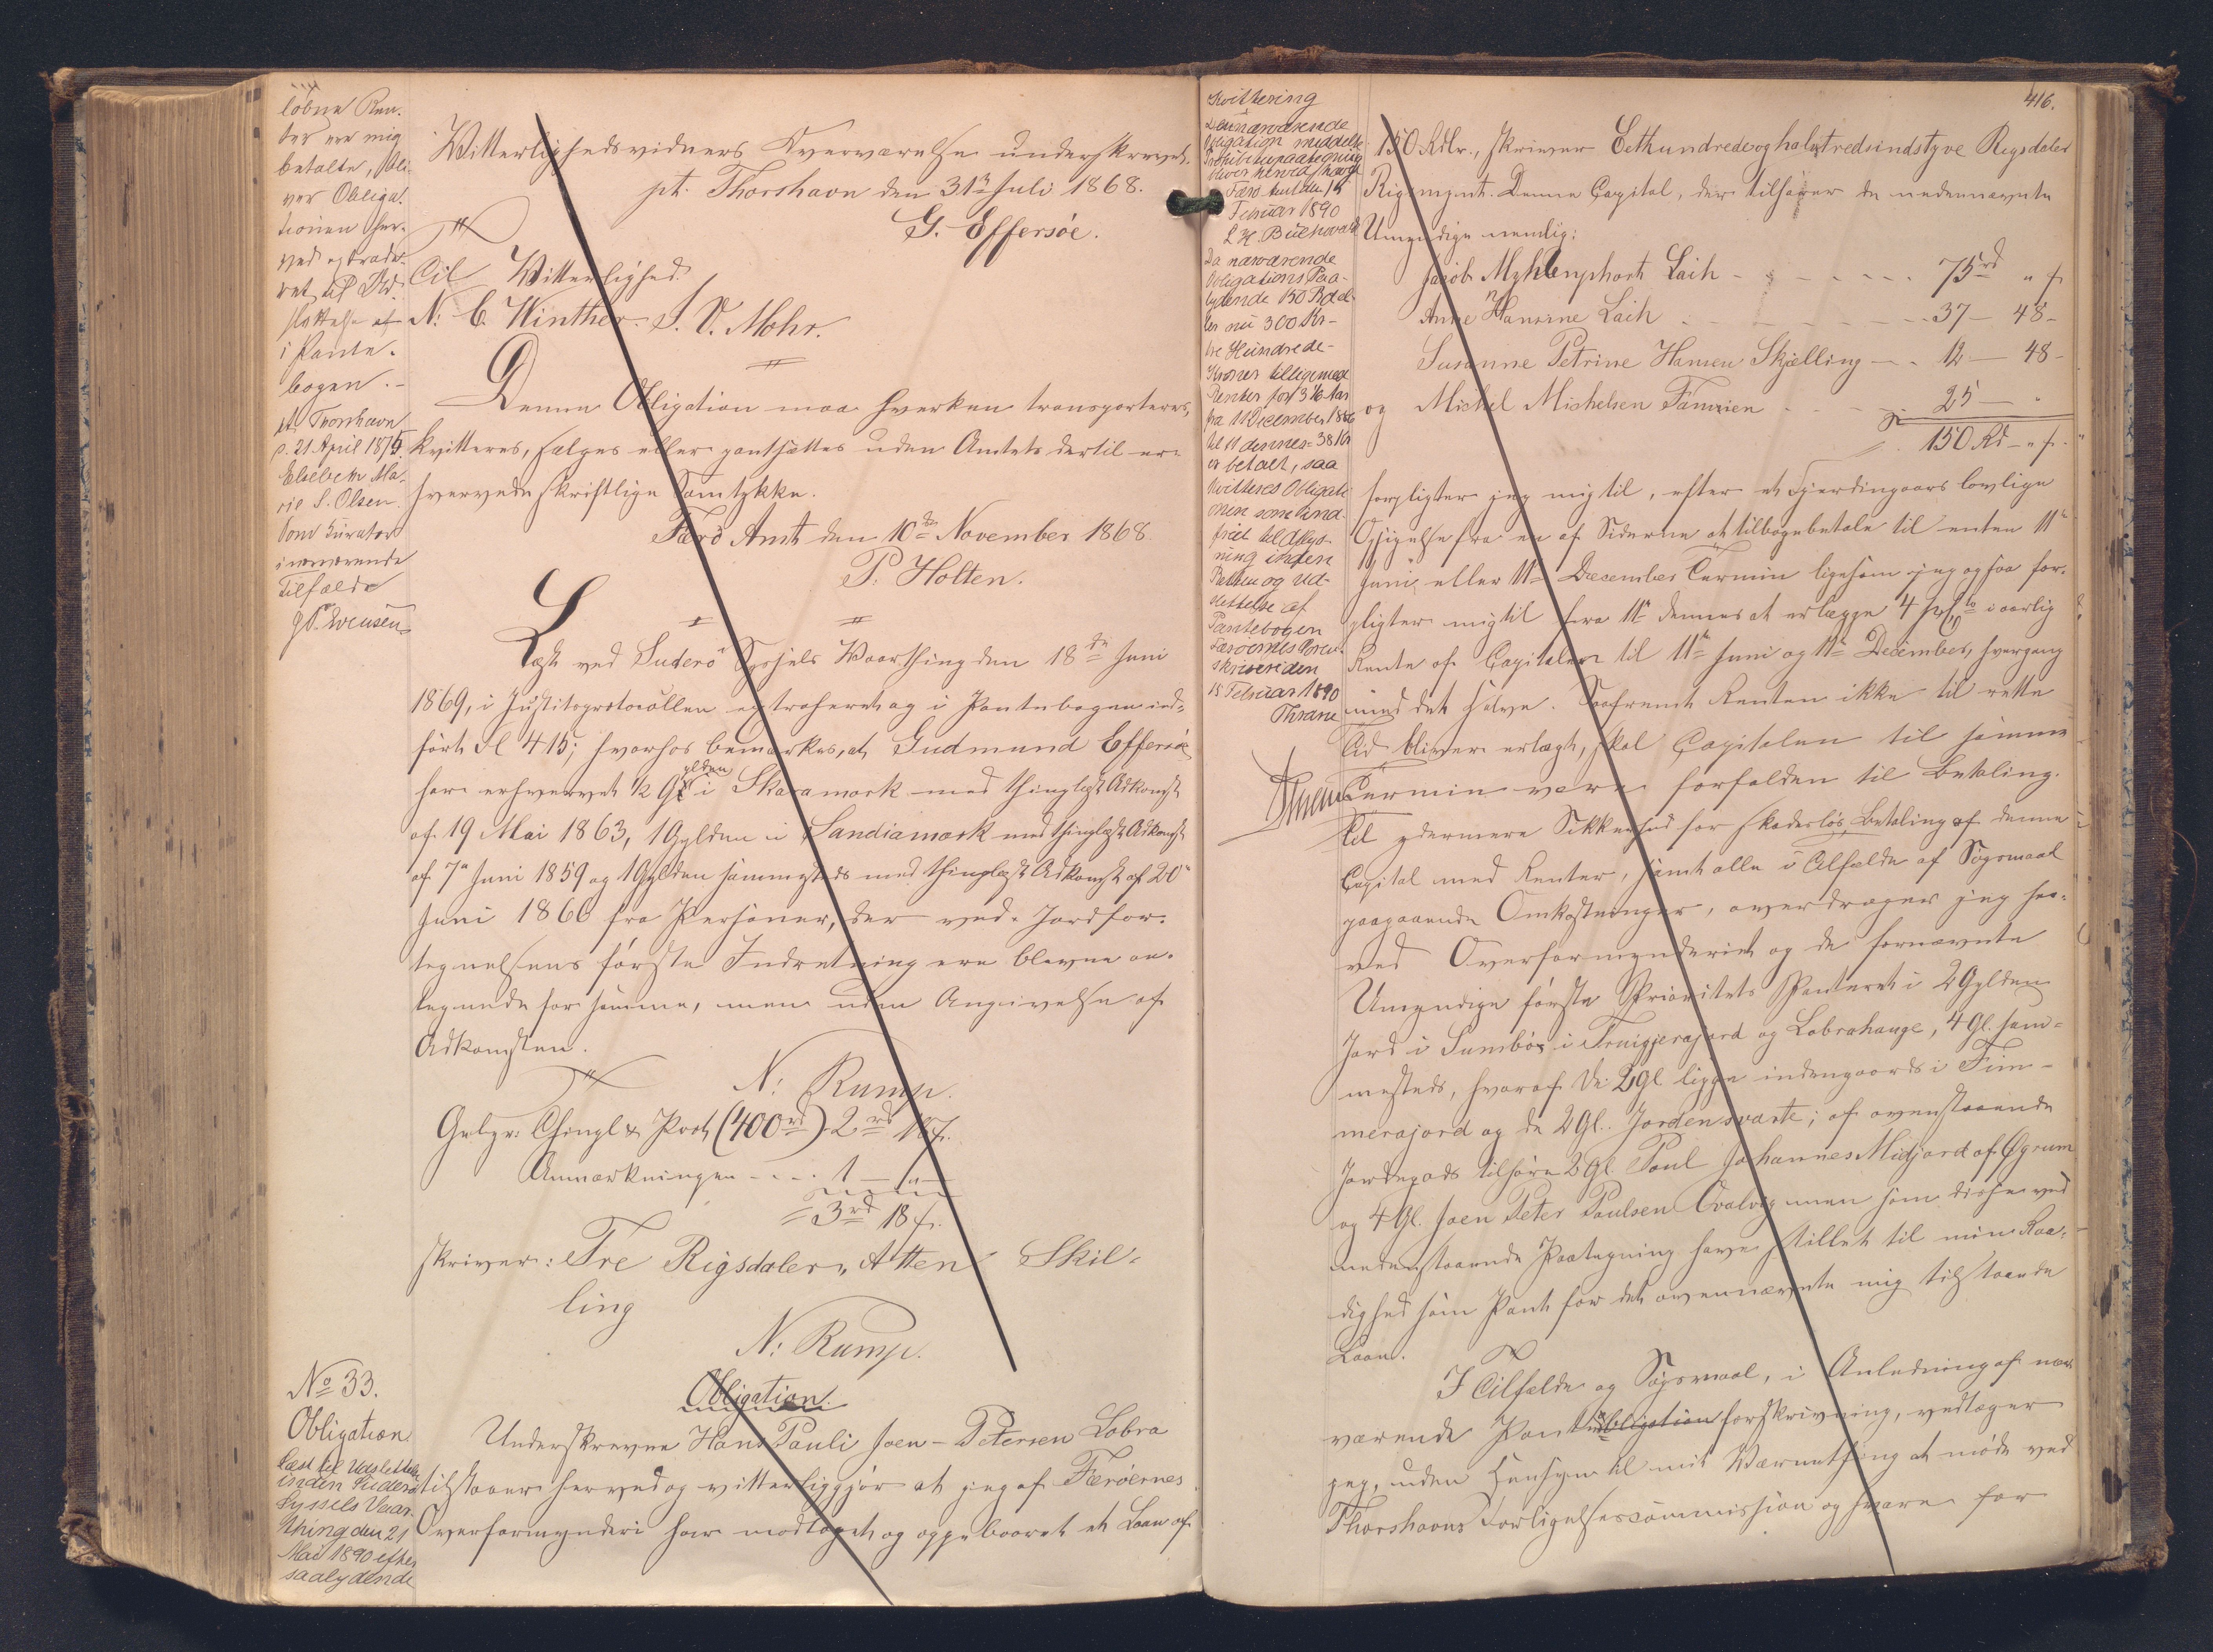 løbne Ren-
ter ere mig
betalte, bli-
ver Obliga-
tionen her-
ved extrade-
ret til Ud-
slettelse af
i Pante-
bogen.-
pt. Thorshavn
d. 21 April 1875.
Elsebeth Ma-
rie S. Olsen
som Kurator
i nærværende
Tilfælde
J. P. Evensen
Vitterlighedsvidners Overværelse underskrevet.
pt. Thorshavn den 31te Juli 1868.
G. Effersøe.
Til Vitterlighed.
N: C. Winther. S. V. Mohr.
Denne Obligation maa hverken transporteres,
kvitteres, sælges eller pantsættes uden Amtets dertil er-
hvervede skriftlige Samtykke.
Færø Amt den 10de November 1868.
P. Holten.
Læst ved Suderø Syssels Vaarthing den 18de Juni
1869, i Justitsprotocollen extraheret og i Pantebogen ind-
ført Fol 415; hvorhos bemærkes, at Gudmund Effersøe
har erhvervet ½ Gylden i Skaramork med thinglæst Adkomst
af 19 Mai 1863, 1 Gylden i Sandiamork med thinglæst Adkomst
af 7de Juni 1859 og 1 Gylden sammesteds med thinglæst Adkomst af 20de
Juni 1866 fra Personer, der ved Jordfor-
tegnelsens første Indretning ere blevne an-
tegnede for samme, men uden Angivelse af
Adkomsten.
N: Rump.
Gebyr: Thingl & Prot (400rd) 2rd 18 s.
Anmærkningen - - - 1 - " -
= 3rd 18 s.
skriver: Tre Rigsdaler, Atten Skil-
ling
N: Rump.
No 33.
Obligation
læst til Udslettelse
inden Suderø
Syssels Vaar-
thing den 21
Mai 1890 efter
saalydende
Obligation.
Underskrevne Hans Pauli Joen-Petersen Lobra
tilstaaer herved og vitterliggjør at jeg af Færøernes
Overformynderi har modtaget og oppebaaret et Laan af
416.
Kvittering
Den nærværende
Obligation meddelte
Prohibitivpaategning
bliver herved hævet
Færø Amt den 15
Februar 1890
L. H. Buchwald
Da nærværende
Obligations Paa-
lydende 150 Rdl
er nu 300 Kr-
tre Hundrede-
Kroner tilligemed
Renter for 3 1/6 Aar
fra 11 December 1886
til 11 dennes = 38 Kr
er betalt, saa
kvitteres Obligati-
onen som ind-
friet til Aflys-
ning inden
Retten og Ud-
slettelse af
Pantebogen
Færøernes Soren-
skriveriden
15 Februar 1890
Thrane
150 Rdlr., skriver Eethundrede og halvtredsindstyve Rigsdaler
Rigsmynt. Denne Capital, der tilhører de nedennævnte
Umyndige nemlig:
Jacob Myhlenphort Laih - - - - - - - 75rd " s
Anne Hansine Laih - - - - - - - 37 - 48 -
Susanne Petrine Hansen Skjælling - - 12 - 48 -
og Michel Michelsen Famien - - - 25 - "
150 Rd - " s.
forpligter jeg mig til, efter et Fjerdingaars lovlige
Opsigelse fra en af Siderne at tilbagebetale til enten 11te
Juni eller 11te December Termin ligesom jeg ogsaa for-
pligter mig til fra 11te dennes at erlægge 4 prCto i aarlig
Rente af Capitalen til 11te Juni og 11te December, hvergang
med det Halve. Saafremt Renten ikke til rette
Tid bliver erlagt, skal Capitalen til samme
Termin være forfalden til Betaling.
Til ydermere Sikkerhed for skadesløs Betaling af denne
Capital med Renter, samt alle i Tilfælde af Søgsmaal
paagaaende Omkostninger, overdrager jeg her-
ved Overformynderiet og de fornævnte
Umyndige første Prioritets Panteret i 2 Gylden
Jord i Sumbø i Truigjerajord og Lobrahauge, 4 Gl. sam-
mesteds, hvoraf de 2 Gl ligge indengaards i Tim-
merajord og de 2 Gl. Jordensvaste; af ovenstaaende
Jordegods tilhøre 2 Gl. Poul Johannes Midjord af Øgrum
og 4 Gl. Joen Peter Paulsen Qvalvig men som disse ved
nedenstaaende Paategning have stillet til min Raa-
dighed som Pant for det ovennævnte mig tilstaaede
Laan.
I Tilfælde og Søgsmaal, i Anledning af nær-
værende Panteobligation forskrivning, vedtager
jeg, uden Hensyn til mit Værnething at møde ved
Thorshavns Forligelsescommission og svare for